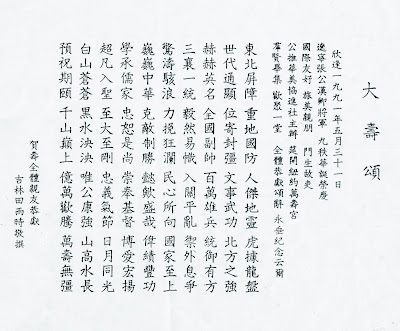 大壽頌
欣逢一九九一年五月三十一日
遼寧張公漢卿將軍 九秩華誕榮慶
國際友好 旅美親朋 門生故吏
公推華美協進社主辦 筵開紐約萬壽宮
群賢畢集 歡聚一堂 全體恭獻頌辭 永垂紀念云爾
東北屏障 重地國防 人傑地靈 虎據龍盤
世代通顯 位寄封疆 文事武功 北方之強
赫赫英名 全國副帥 百萬雄兵 統御有方
三襄一統 毅然易幟 入關平亂 禦外息爭
驚濤駭浪 力挽狂瀾 民心所向 國家至上
巍巍中華 克敵制勝 懿歟盛哉 偉績豐功
學承儒家 忠恕是尚 崇奉基督 博愛宏揚
超凡入聖 至大至剛 忠義氣節 日月同光
白山蒼蒼 黑水泱泱 唯公康強 山高水長
預祝期頤 千山巔上 億萬歡騰 萬壽無疆
賀壽全體親友恭獻
吉林田雨時敬撰